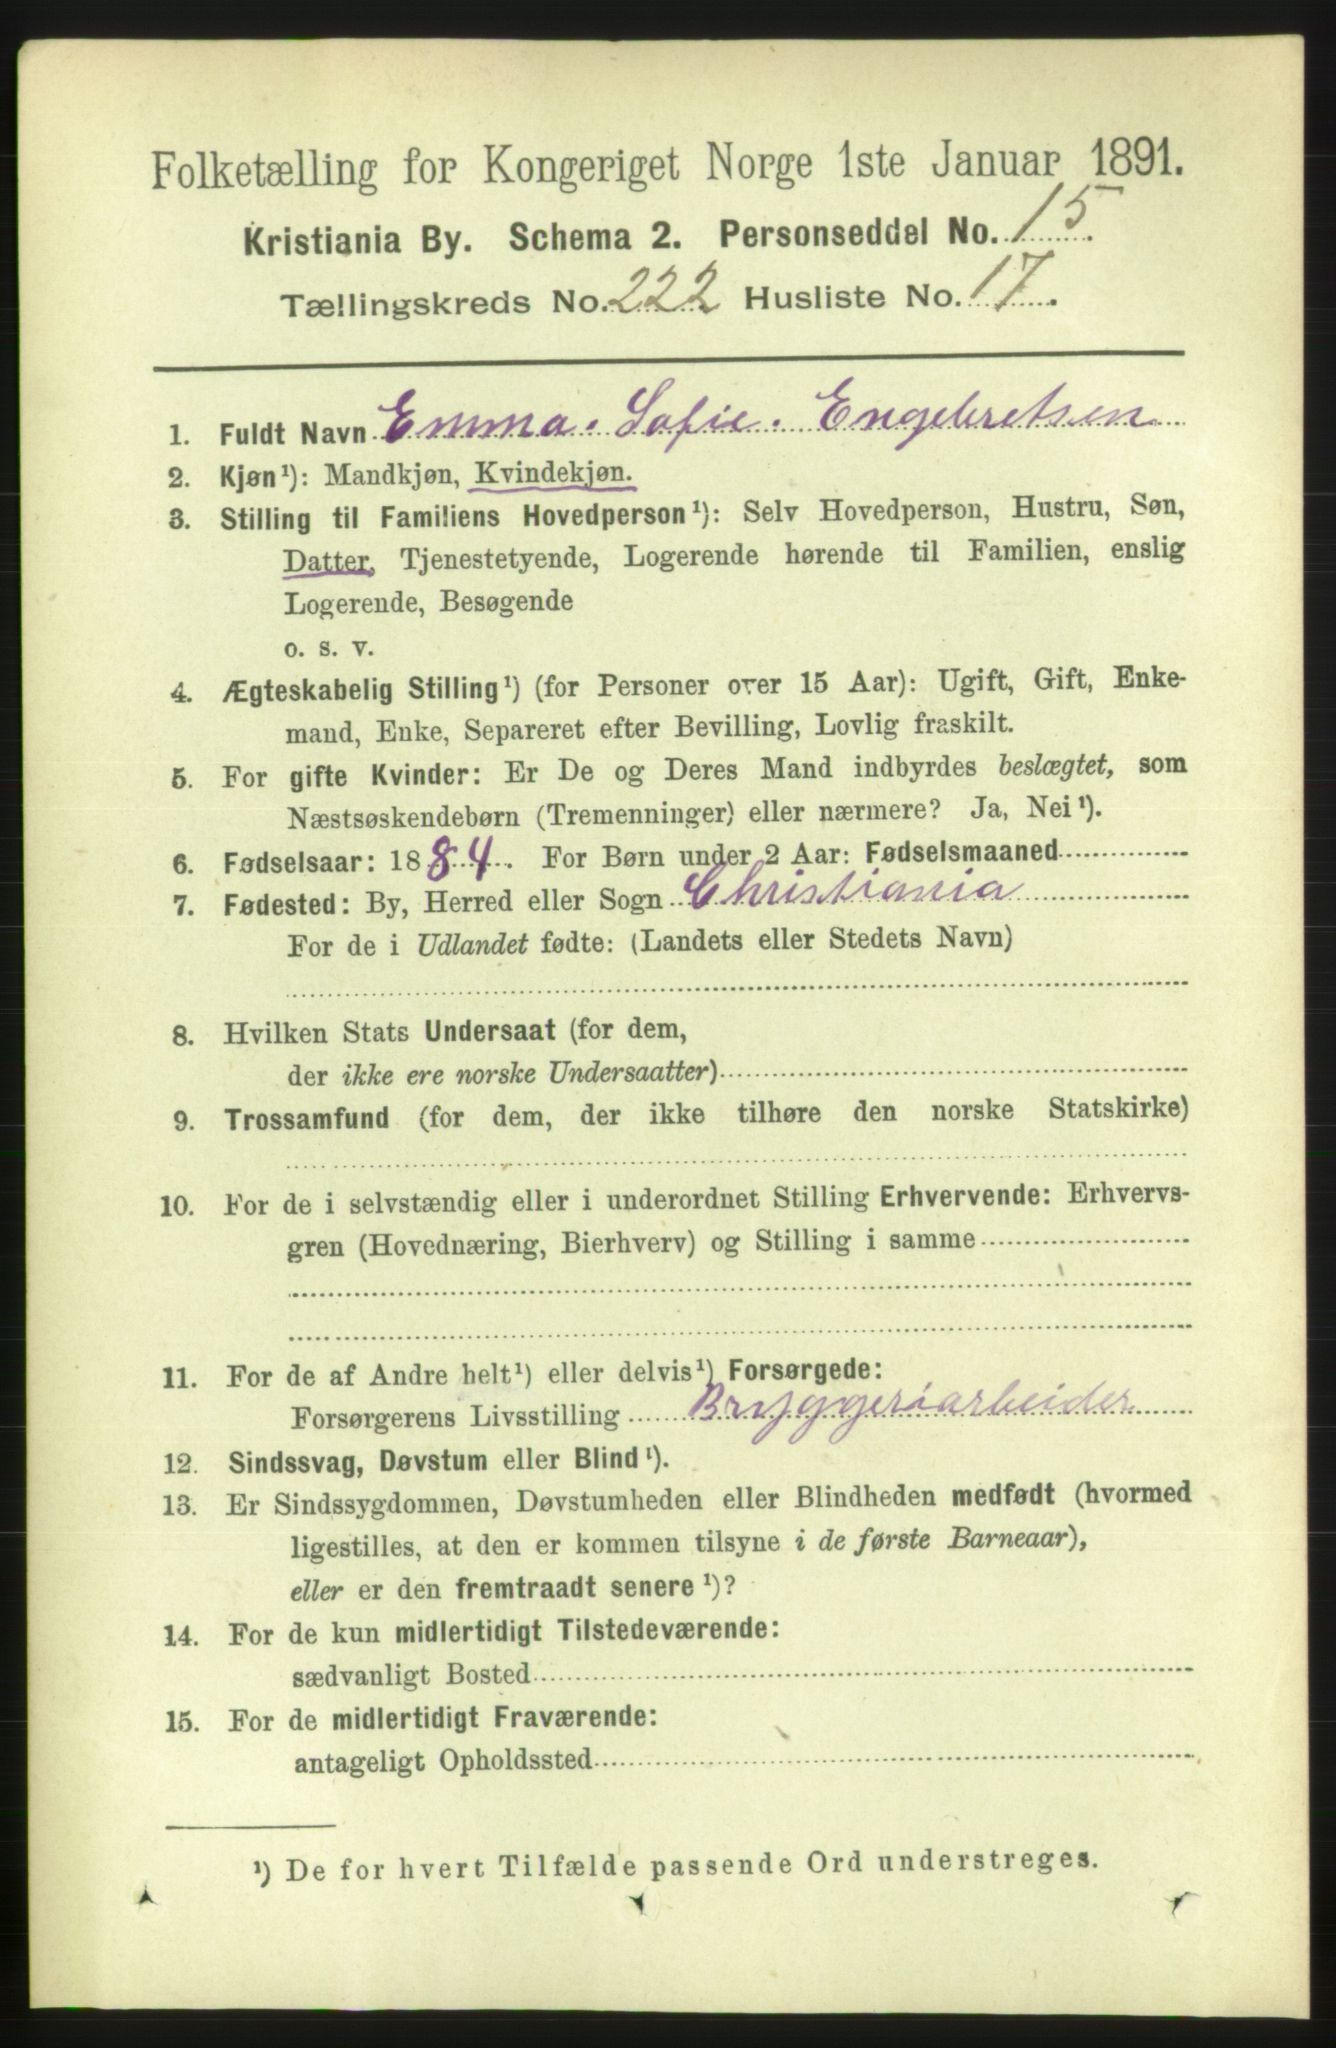 Folketælling for Kongeriget Norge 1ste Januar 1891.
Kristiania By. Schema 2. Personseddel No. 15.
Tællingskreds No. 222 Husliste No. 17.
1. Fuldt Navn Emma. Sofie. Engebretsen
2. Kjøn¹): Mandkjøn, Kvindekjøn.
3. Stilling til Familiens Hovedperson¹): Selv Hovedperson, Hustru, Søn,
Datter, Tjenestetyende, Logerende hørende til Familien, enslig
Logerende, Besøgende
o. s. v.
4. Ægteskabelig Stilling¹) (for Personer over 15 Aar): Ugift, Gift, Enke-
mand, Enke, Separeret efter Bevilling, Lovlig fraskilt.
5. For gifte Kvinder: Er De og Deres Mand indbyrdes beslægtet, som
Næstsøskendebørn (Tremenninger) eller nærmere? Ja, Nei¹).
6. Fødselsaar: 1884. For Børn under 2 Aar: Fødselsmaaned
7. Fødested: By, Herred eller Sogn Christiania
For de i Udlandet fødte: (Landets eller Stedets Navn)
8. Hvilken Stats Undersaat (for dem,
der ikke ere norske Undersaatter)
9. Trossamfund (for dem, der ikke tilhøre den norske Statskirke)
10. For de i selvstændig eller i underordnet Stilling Erhvervende: Erhvervs-
gren (Hovednæring, Bierhverv) og Stilling i samme
11. For de af Andre helt¹) eller delvis¹) Forsørgede:
Forsørgerens Livsstilling Bryggeriarbeider
12. Sindssvag, Døvstum eller Blind¹).
13. Er Sindssygdommen, Døvstumheden eller Blindheden medfødt (hvormed
ligestilles, at den er kommen tilsyne i de første Barneaar),
eller er den fremtraadt senere¹)?
14. For de kun midlertidigt Tilstedeværende:
sædvanligt Bosted
15. For de midlertidigt Fraværende:
antageligt Opholdssted
¹) De for hvert Tilfælde passende Ord understreges.